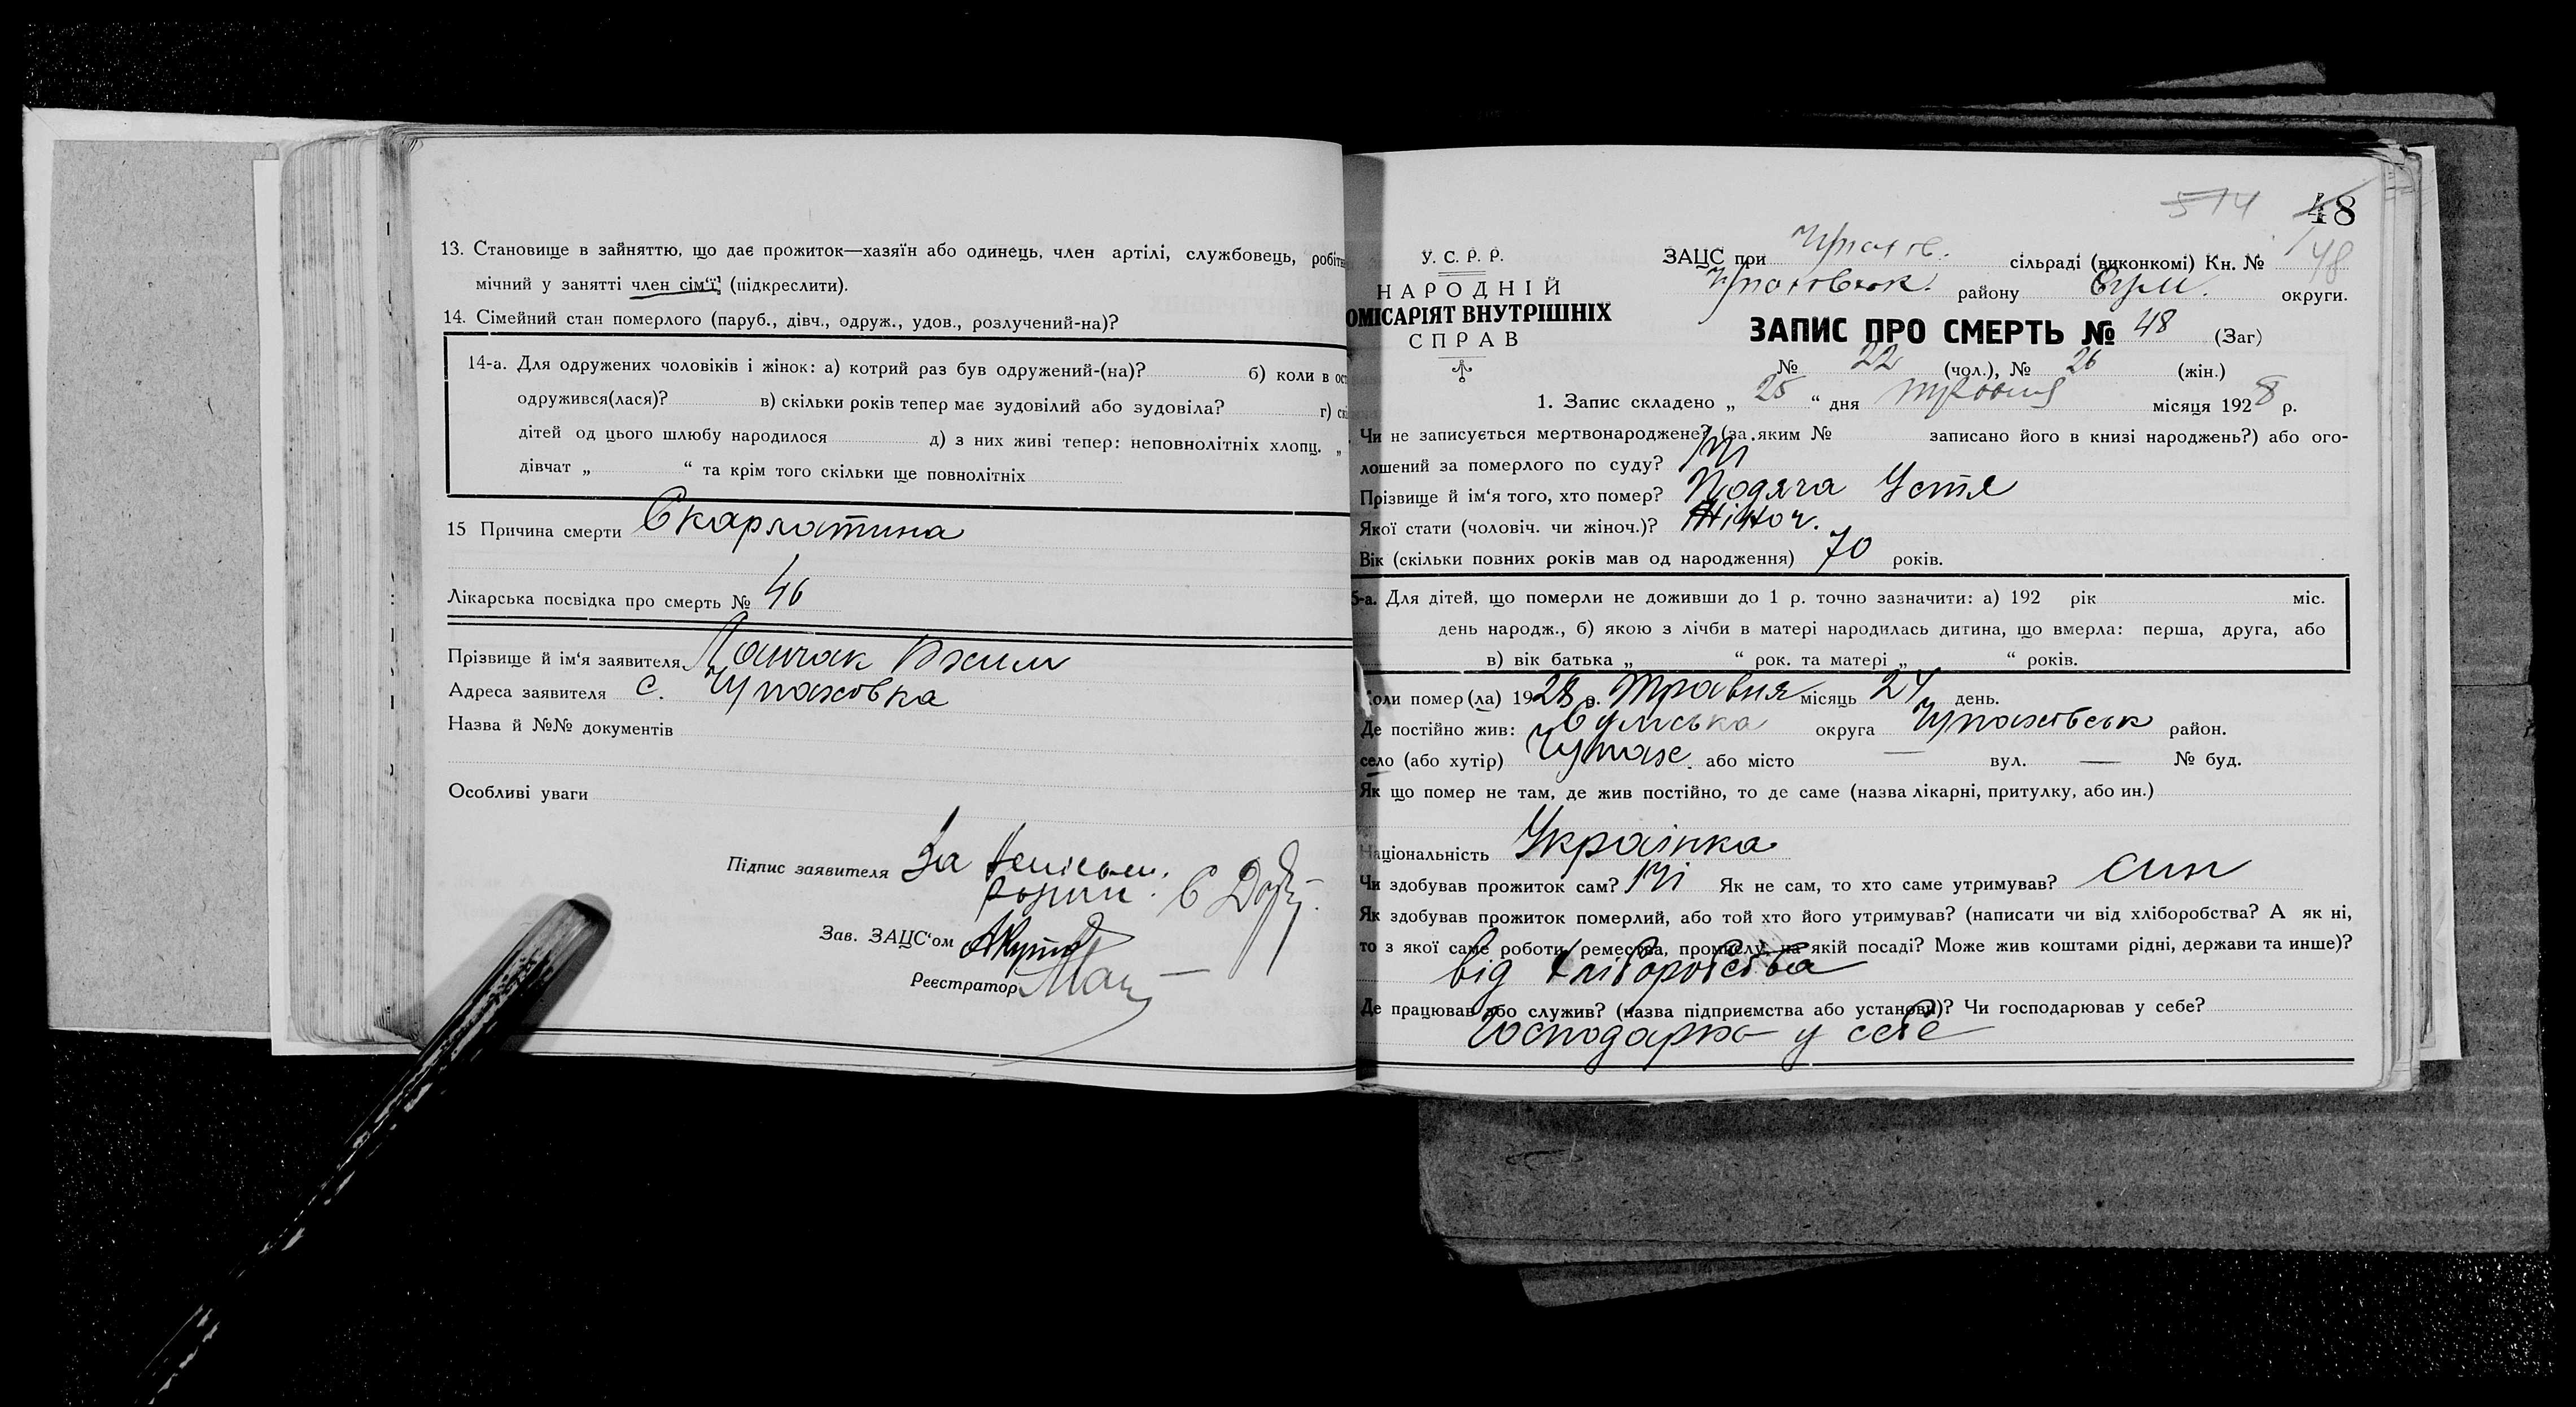 13. Становище в зайняттю, що дає прожиток—хазяїн або одинець, член артілі, службовець,
мічний у занятті член сім'ї (підкреслити).
14. Сімейний стан померлого (паруб., дівч., одруж., удов., розлучений-на)?
14-а. Для одружених чоловіків і жінок: а) котрий раз був одружений-(на)? б) коли в
одружився(лася)? в) скільки років тепер має зудовілий або зудовіла? г)
дітей од цього шлюбу народилося д) з них живі тепер: неповнолітніх хлопц. „
дівчат „ “ та крім того скільки ще повнолітніх
15 Причина смерти Скарлатина
Лікарська посвідка про смерть № 46
Прізвище й ім'я заявителя
Адреса заявителя с. Чупаховка
Назва й №№ документів
Особливі уваги
Підпис заявителя За
Зав. ЗАЦС'ом
Реєстратор
514 48
У. С. Р. Р.
НАРОДНІЙ
ОМІСАРІЯТ ВНУТРІШНІХ
СПРАВ
ЗАЦС при Чупахов. сільраді (виконкомі) Кн. № 48
району Сум. округи.
ЗАПИС ПРО СМЕРТЬ № 48 (Заг)
№ 22 (чол.), № 26 (жін.)
1. Запис складено „ 25 “ дня травня місяця 1928 р.
Чи не записується мертвонароджене? (за яким № записано його в книзі народжень?) або ого-
лошений за померлого по суду? Ні
Прізвище й ім'я того, хто помер? Подяга Устя
Якої стати (чоловіч. чи жіноч.)? Жіноч.
Вік (скільки повних років мав од народження) 70 років.
5-а. Для дітей, що померли не доживши до 1 р. точно зазначити: а) 192 рік міс.
день народж., б) якою з лічби в матері народилась дитина, що вмерла: перша, друга, або
в) вік батька „ “ рок. та матері „ “ років.
Коли помер(ла) 1928 р. Травня місяць 24 день.
Де постійно жив: Сумська округа Чупаховськ район.
село (або хутір) Чупах. або місто — вул. — № буд.
Як що помер не там, де жив постійно, то де саме (назва лікарні, притулку, або ин.)
Національність Українка
Чи здобував прожиток сам? Ні Як не сам, то хто саме утримував? син
Як здобував прожиток померлий, або той хто його утримував? (написати чи від хліборобства? А як ні,
то з якої саме роботи, ремества, промислу, на якій посаді? Може жив коштами рідні, держави та инше)?
від хліборобства
Де працював або служив? (назва підприємства або установи)? Чи господарював у себе?
Господарка у себе